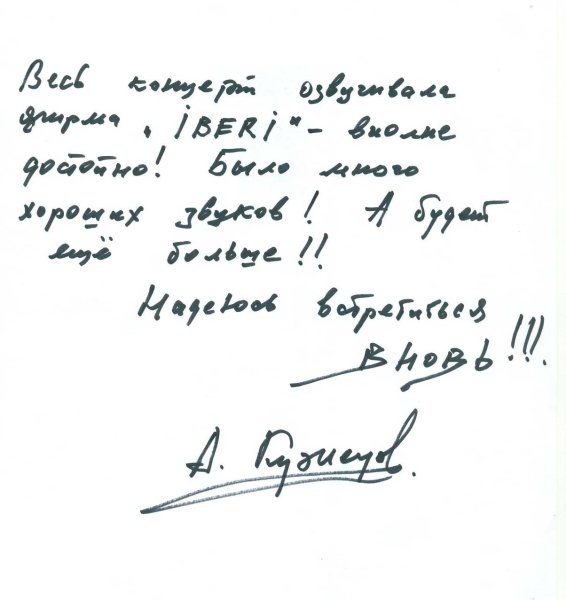 Весь концерт озвучивала
фирма „iBERi" - вполне
достойно! Было много
хороших звуков! А будет
ещё больше!!
Надеюсь встретиться
ВНОВЬ!!!.
А. Кузнецов.